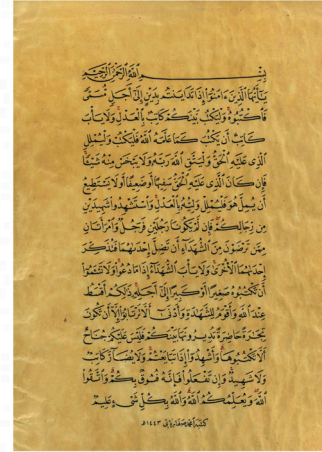 بِسْمِ اللَّهِ الرَّحْمَٰنِ الرَّحِيمِ
يَٰٓأَيُّهَا الَّذِينَ ءَامَنُوٓا۟ إِذَا تَدَايَنتُم بِدَيْنٍ إِلَىٰٓ أَجَلٍ مُّسَمًّى
فَاكْتُبُوهُ وَلْيَكْتُب بَّيْنَكُمْ كَاتِبٌ بِالْعَدْلِ وَلَا يَأْبَ
كَاتِبٌ أَن يَكْتُبَ كَمَا عَلَّمَهُ اللَّهُ فَلْيَكْتُبْ وَلْيُمْلِلِ
الَّذِى عَلَيْهِ الْحَقُّ وَلْيَتَّقِ اللَّهَ رَبَّهُ وَلَا يَبْخَسْ مِنْهُ شَيْـًٔا
فَإِن كَانَ الَّذِى عَلَيْهِ الْحَقُّ سَفِيهًا أَوْ ضَعِيفًا أَوْ لَا يَسْتَطِيعُ
أَن يُمِلَّ هُوَ فَلْيُمْلِلْ وَلِيُّهُ بِالْعَدْلِ وَاسْتَشْهِدُوا۟ شَهِيدَيْنِ
مِن رِّجَالِكُمْ فَإِن لَّمْ يَكُونَا رَجُلَيْنِ فَرَجُلٌ وَامْرَأَتَانِ
مِمَّن تَرْضَوْنَ مِنَ الشُّهَدَآءِ أَن تَضِلَّ إِحْدَىٰهُمَا فَتُذَكِّرَ
إِحْدَىٰهُمَا الْأُخْرَىٰ وَلَا يَأْبَ الشُّهَدَآءُ إِذَا مَا دُعُوا۟ وَلَا تَسْـَٔمُوٓا۟
أَن تَكْتُبُوهُ صَغِيرًا أَوْ كَبِيرًا إِلَىٰٓ أَجَلِهِ ذَٰلِكُمْ أَقْسَطُ
عِندَ اللَّهِ وَأَقْوَمُ لِلشَّهَٰدَةِ وَأَدْنَىٰٓ أَلَّا تَرْتَابُوٓا۟ إِلَّآ أَن تَكُونَ
تِجَٰرَةً حَاضِرَةً تُدِيرُونَهَا بَيْنَكُمْ فَلَيْسَ عَلَيْكُمْ جُنَاحٌ
أَلَّا تَكْتُبُوهَا وَأَشْهِدُوٓا۟ إِذَا تَبَايَعْتُمْ وَلَا يُضَآرَّ كَاتِبٌ
وَلَا شَهِيدٌ وَإِن تَفْعَلُوا۟ فَإِنَّهُ فُسُوقٌ بِكُمْ وَاتَّقُوا۟
اللَّهَ وَيُعَلِّمُكُمُ اللَّهُ وَاللَّهُ بِكُلِّ شَىْءٍ عَلِيمٌ